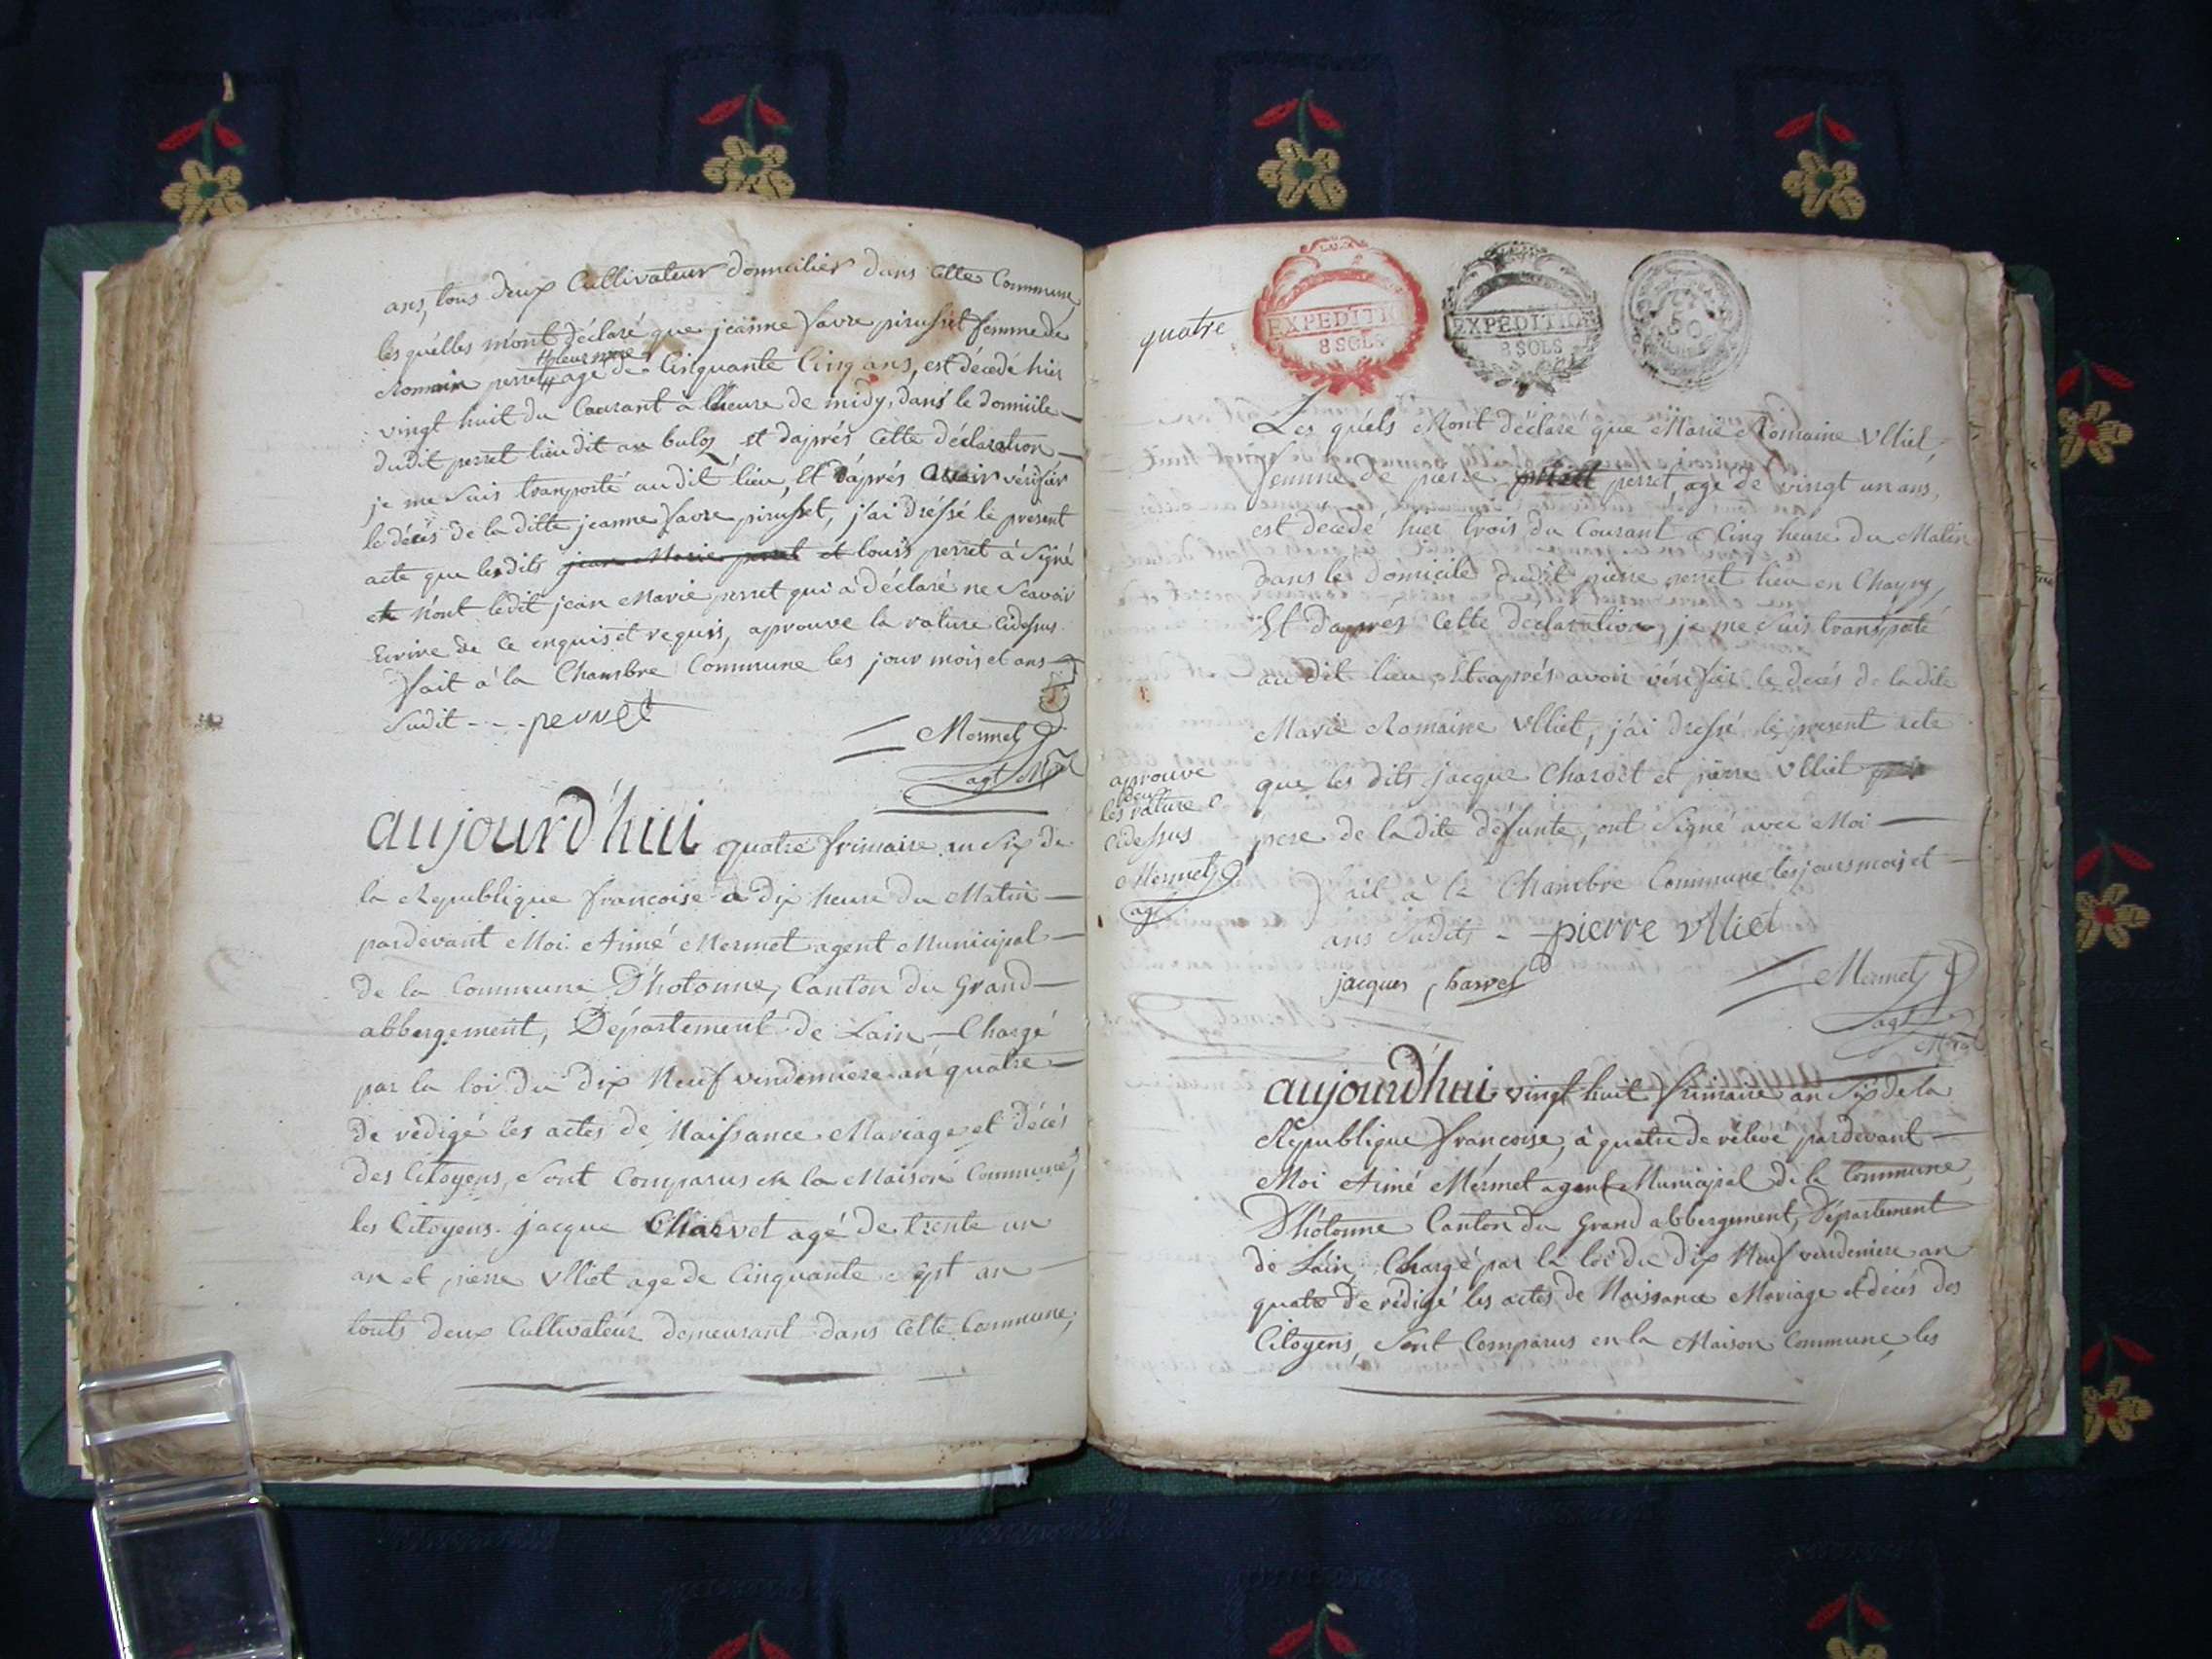 ans, tous deux Cultivateur domicilier dans Cette Commune
les quélles m'ont déclaré que jeanne favre pirusset femme de
Romain perret agé de Cinquante Cinq ans, est décedé hier
# leur mere
vingt huit du Courant à lheure de midy, dans le domicile
dudit perret lieu dit au buloz et d'aprés Cette déclaration
je me suis transporté audit lieu, Et d'aprés avoir vérifiér
le décés de la ditte jeanne favre pirusset, j'ai dréssé le present
acte que lesdits jean Marie perret et louis perret à Signé
et n'ont ledit jean Marie perret qui a déclaré ne Scavoir
Ecrire de Ce enquis et requis, aprouve la rature cidesus
fait à la Chambre Commune les jour mois et ans
Sudit - - - perret
Mermet
agt Mpal
aujourd'hui quatre frimaire an Six de
la Republique francoise a dix heure du Matin
pardevant Moi Aimé Mermet agent Municipal
de la Commune D'hotonne, Canton du Grand
abbergement, Département de Lain Chargé
par la loi du dix Neuf vendemiere an quatre
de rédigé les actes de Naissance Mariage et décés
des Citoyens, Sont Comparus en la Maison Commune,
les Citoyens jacque Charvet agé de trente un
an et pierre Ulliet age de Cinquante Sept an
touts deux Cultivateur demeurant dans Cette Commune,
quatre
EXPEDITION
8 SOLS
EXPEDITION
8 SOLS
50
Les quéls M'ont déclaré que Marie Romaine Ulliet,
femme de pierre perret, agé de vingt un ans,
est décedé hier trois du Courant a Cinq heure du Matin
dans le domicile dudit pierre perret lieu en Chayny,
Et d'aprés Cette déclaration, je me Suis transporté
au dit lieu, Et aprés avoir vérifiér le decés de la dite
Marie Romaine Ulliet, j'ai dréssé le present acte
que les dits jacque Charvet et pierre Ulliet
pere de la dite défunte, ont Signé avec Moi
fait à la Chambre Commune les jours mois et
ans Sudits - pierre vlliet
aprouve
deux
les rature
Cidessus
Mermet
agt
jacques Charvet
Mermet
agt
Mpal
aujourd'hui vingt huit frimaire an Six de la
Republique francoise, à quatre de rélevé pardevant
Moi Aimé Mérmet agent Municipal de la Commune
D'hotonne Canton du Grand abbergement, Département
de Lain, Chargé par la loi du dix Neuf vendemiere an
quatre de rédigé les actes de Naissance Mariage et décés des
Citoyens, Sont Comparus en la Maison Commune, les